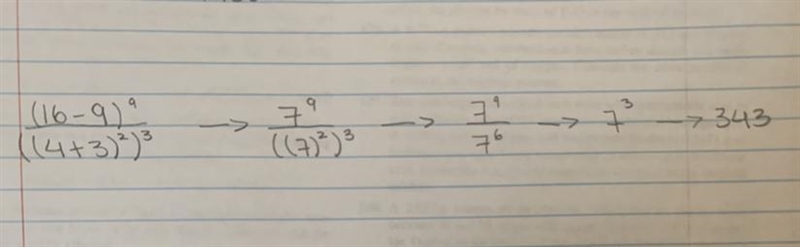 (16-9)⁹/((4+3)²)³ → 7⁹/((7)²)³ → 7⁹/7⁶ → 7³ → 343